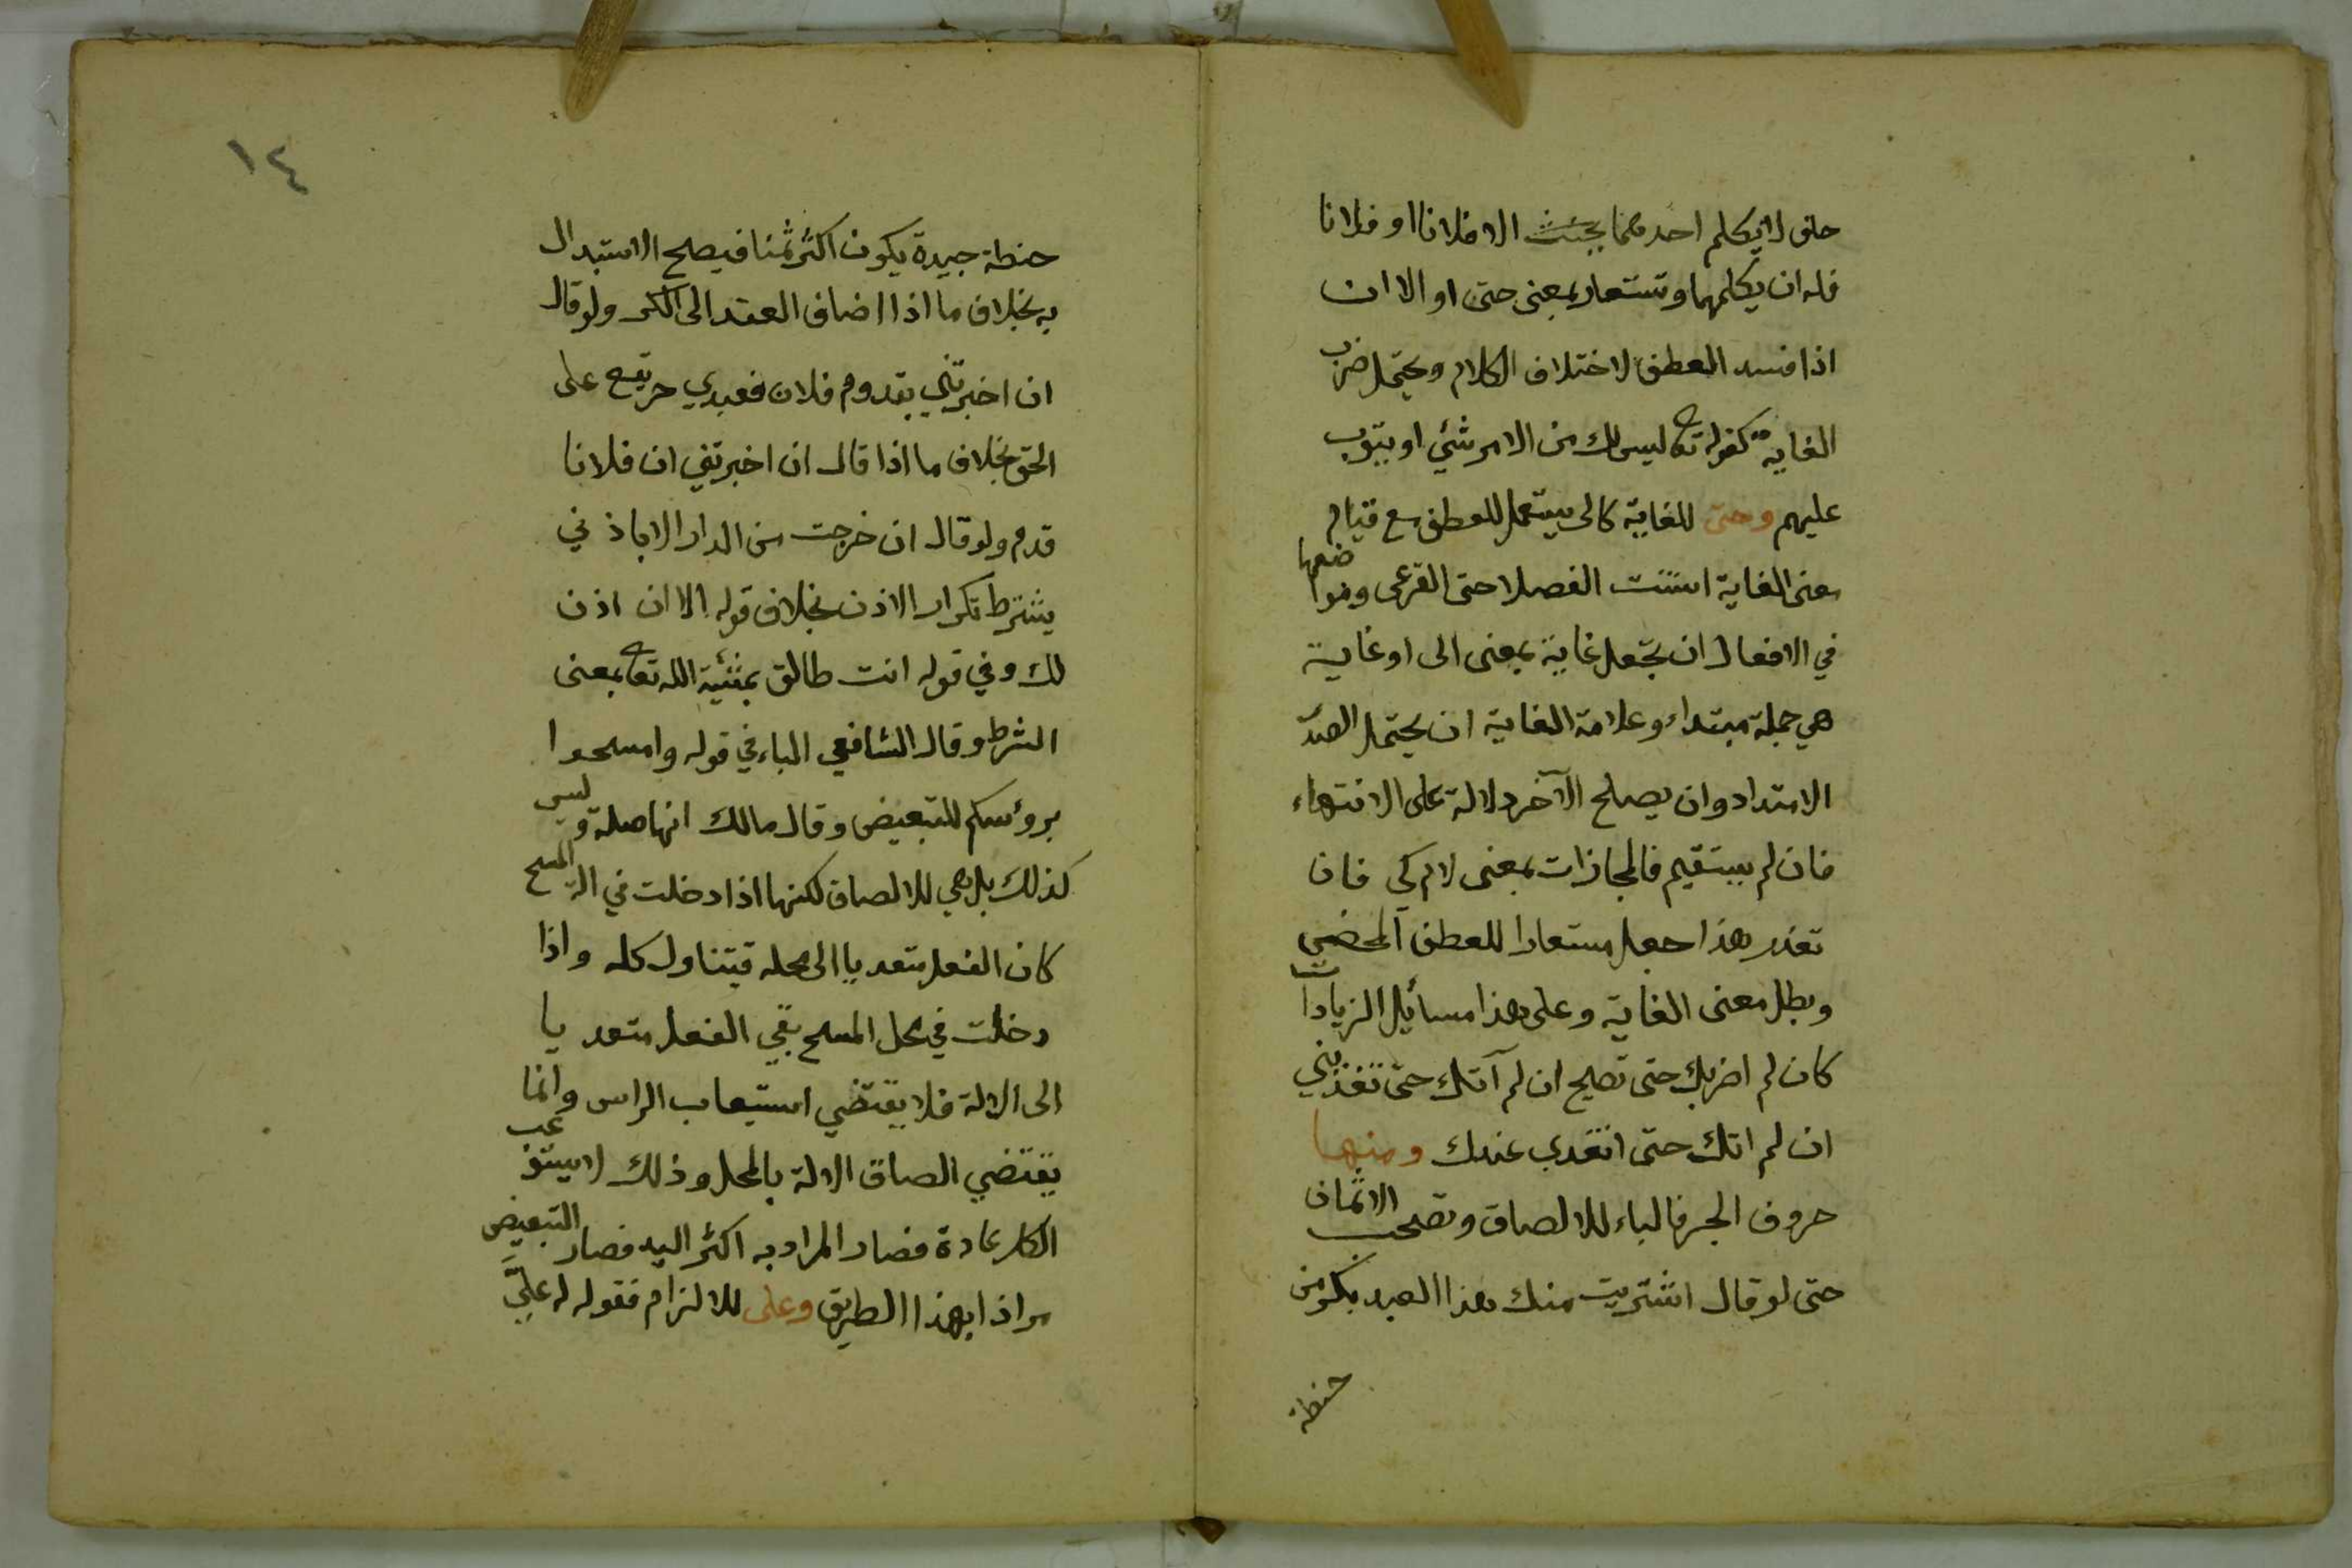 حلف لا يكلم احدهما يحنث الا فلانا او فلانا
فله ان يكلمهما وتستعار بمعنى حتى او الا ان
اذا فسد العطف لاختلاف الكلام ويحتمل ضرب
الغاية كقوله تع ليس لك من الامر شئي او يتوب
عليهم وحتى للغاية كالى يستعمل للعطف مع قيام
معنى الغاية استنت الفصلا حتى القرعى ومواضعها
في الافعال ان تجعل غاية بمعنى الى او غاية
هي جملة مبتداء وعلامة الغاية ان يحتمل الصدر
الامتداد وان يصلح الآخر دلالة على الانتهاء
فان لم يستقيم فالمجازات بمعنى لام كي فان
تعذر هذا جعل مستعارا للعطف المحضي
وبطل معنى الغاية وعلى هذا مسائل الزيادات
كان لم اضربك حتى تصيح ان لم آتك حتى تغذيني
ان لم اتك حتى اتغدى عندك ومنها
حروف الجر فالباء للالصاق وتصحب الاثمان
حتى لو قال اشتريت منك هذا العبد بكر من
حنطة
١٤
حنطة جيدة يكون اكثر ثمنا فيصح الاستبدال
به بخلاف ما اذا اضاف العقد الى الكر ولو قال
ان اخبرتني بقدوم فلان فعبدي حر يقع على
الحق بخلاف ما اذا قال ان اخبرتني ان فلانا
قدم ولو قال ان خرجت من الدار الا باذني
يشترط تكرار الاذن بخلاف قوله الا ان اذن
لك وفي قوله انت طالق بمشئية الله تع بمعنى
الشرط وقال الشافعي الباء في قوله وامسحوا
برؤسكم للتبعيض وقال مالك انها صلة وليس
كذلك بل هي للالصاق لكنها اذا دخلت في الة المسح
كان الفعل متعديا الى محله فيتناول كله واذا
دخلت في محل المسح بقي الفعل متعديا
الى الالة فلا يقتضي استيعاب الراس وانما
يقتضي الصاق الالة بالمحل وذلك لا يستوعب
الكل عادة فصار المراد به اكثر اليد فصار التبعيض
مرادا بهذا الطريق وعلى للالزام فقوله له عليَّ